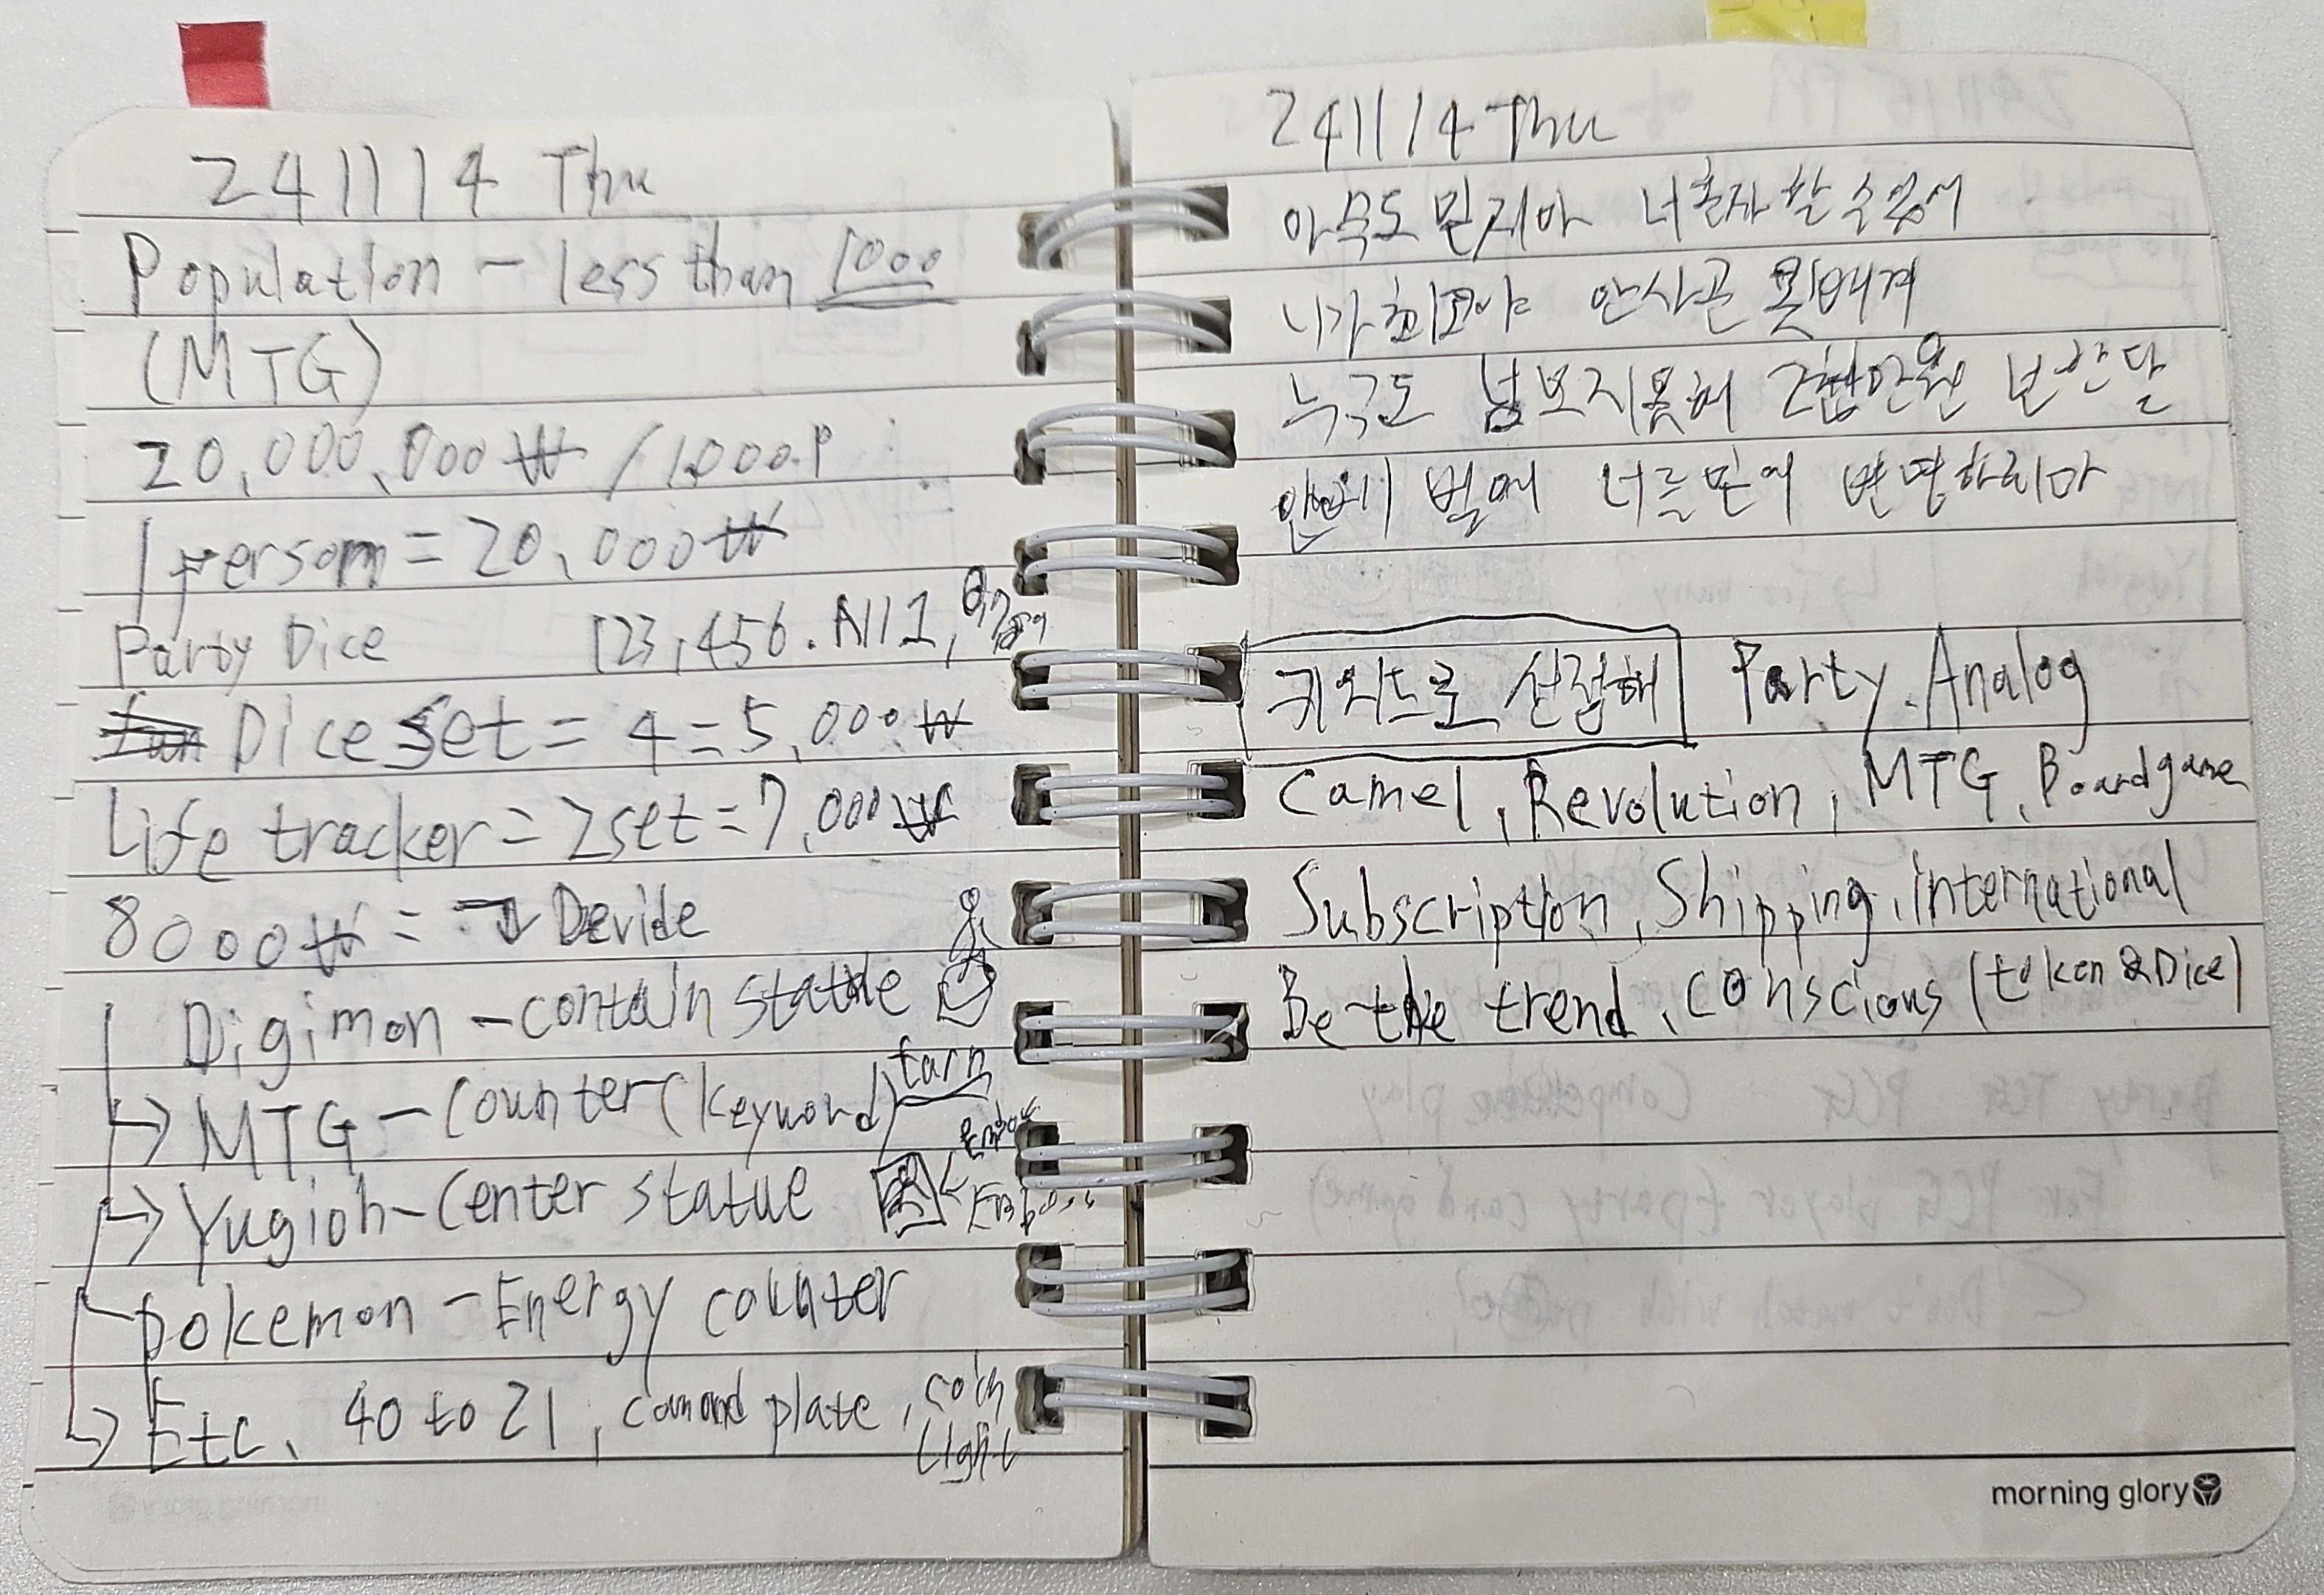 241114 Thu
Population - less than 1000
(MTG)
20,000,000₩ / 1,000.P
1 person = 20,000₩
Party Dice 123,456. All 1,
Dice set = 4 = 5,000₩
Life tracker = 2set = 7,000₩
8000₩ = Devide
Digimon - contain statue
MTG - counter (keyword) turn
Yugioh - Center statue Emboss
pokemon - Energy counter
Etc, 40 to 21, command plate, coin
Light
241114 Thu
아무도 믿지마 너 혼자 할 수 있어
니가 최고야 안사곤 못배겨
누구도 넘보지못해 2천만원 번단다
너를 믿어 변명하지마
키워드로 선점해 Party, Analog
Camel, Revolution, MTG, Boardgame
Subscription, Shipping, international
Be the trend, conscious (token & Dice)
morning glory